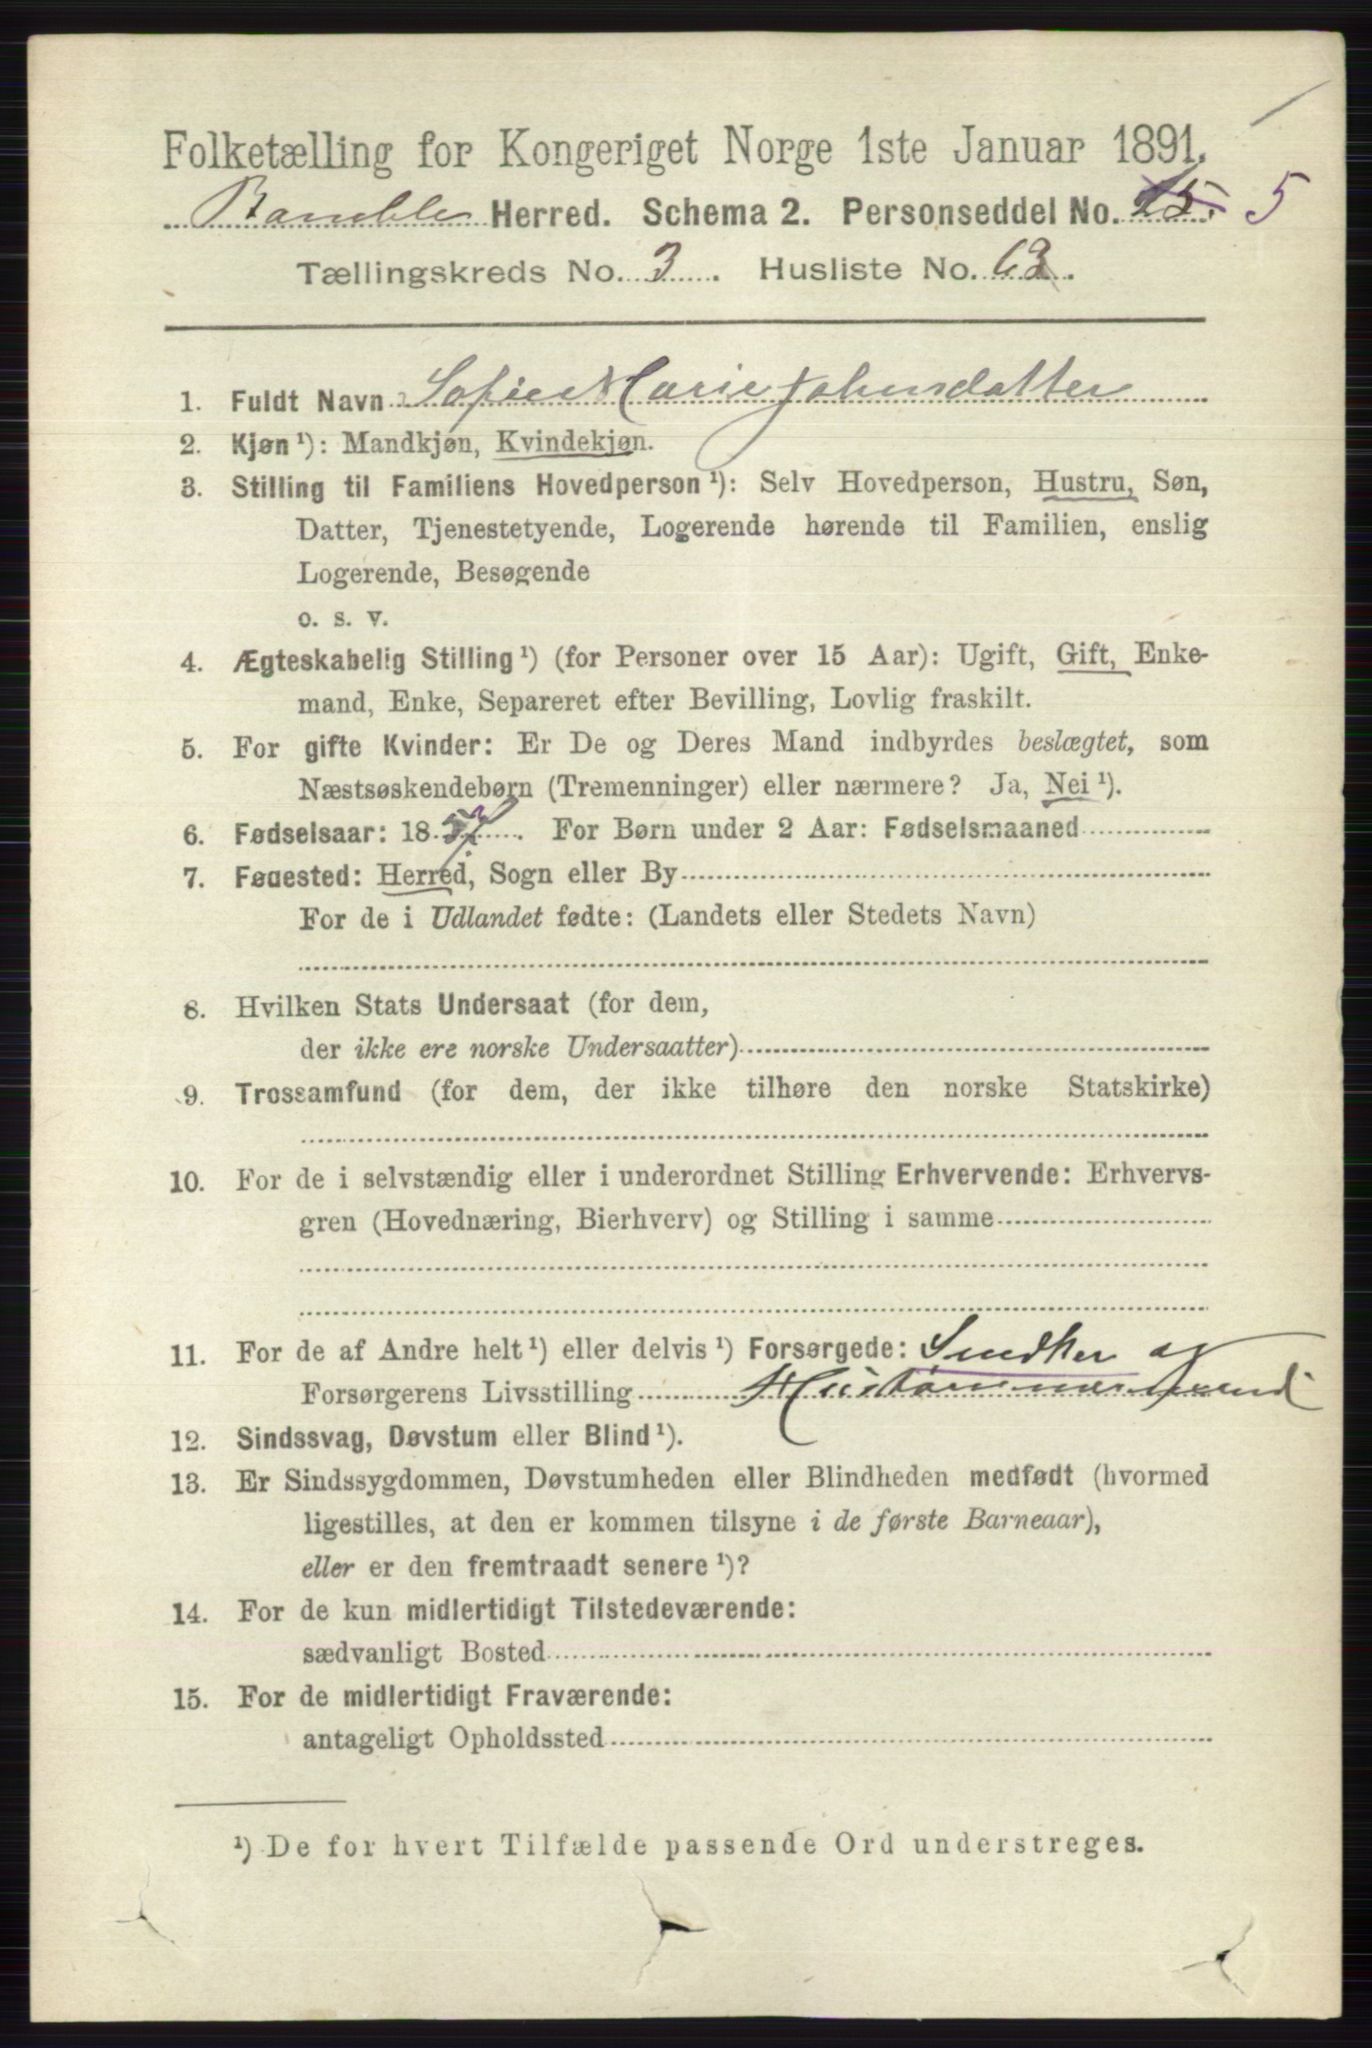 Folketælling for Kongeriget Norge 1ste Januar 1891.
Bamble Herred. Schema 2. Personseddel No. 15. 5
Tællingskreds No. 3. Husliste No. 63.
1. Fuldt Navn Sofie Marie Johnsdatter
2. Kjøn ¹): Mandkjøn, Kvindekjøn.
3. Stilling til Familiens Hovedperson ¹): Selv Hovedperson, Hustru, Søn,
Datter, Tjenestetyende, Logerende hørende til Familien, enslig
Logerende, Besøgende
o. s. v.
4. Ægteskabelig Stilling ¹) (for Personer over 15 Aar): Ugift, Gift, Enke-
mand, Enke, Separeret efter Bevilling, Lovlig fraskilt.
5. For gifte Kvinder: Er De og Deres Mand indbyrdes beslægtet, som
Næstsøskendebørn (Tremenninger) eller nærmere? Ja, Nei ¹).
6. Fødselsaar: 185 . For Børn under 2 Aar: Fødselsmaaned
7. Fødested: Herred, Sogn eller By
For de i Udlandet fødte: (Landets eller Stedets Navn)
8. Hvilken Stats Undersaat (for dem,
der ikke ere norske Undersaatter)
9. Trossamfund (for dem, der ikke tilhøre den norske Statskirke)
10. For de i selvstændig eller i underordnet Stilling Erhvervende: Erhvervs-
gren (Hovednæring, Bierhverv) og Stilling i samme
11. For de af Andre helt ¹) eller delvis ¹) Forsørgede: Snedker og
Forsørgerens Livsstilling Hustømmermand
12. Sindssvag, Døvstum eller Blind ¹).
13. Er Sindssygdommen, Døvstumheden eller Blindheden medfødt (hvormed
ligestilles, at den er kommen tilsyne i de første Barneaar),
eller er den fremtraadt senere ¹)?
14. For de kun midlertidigt Tilstedeværende:
sædvanligt Bosted
15. For de midlertidigt Fraværende:
antageligt Opholdssted
¹) De for hvert Tilfælde passende Ord understreges.